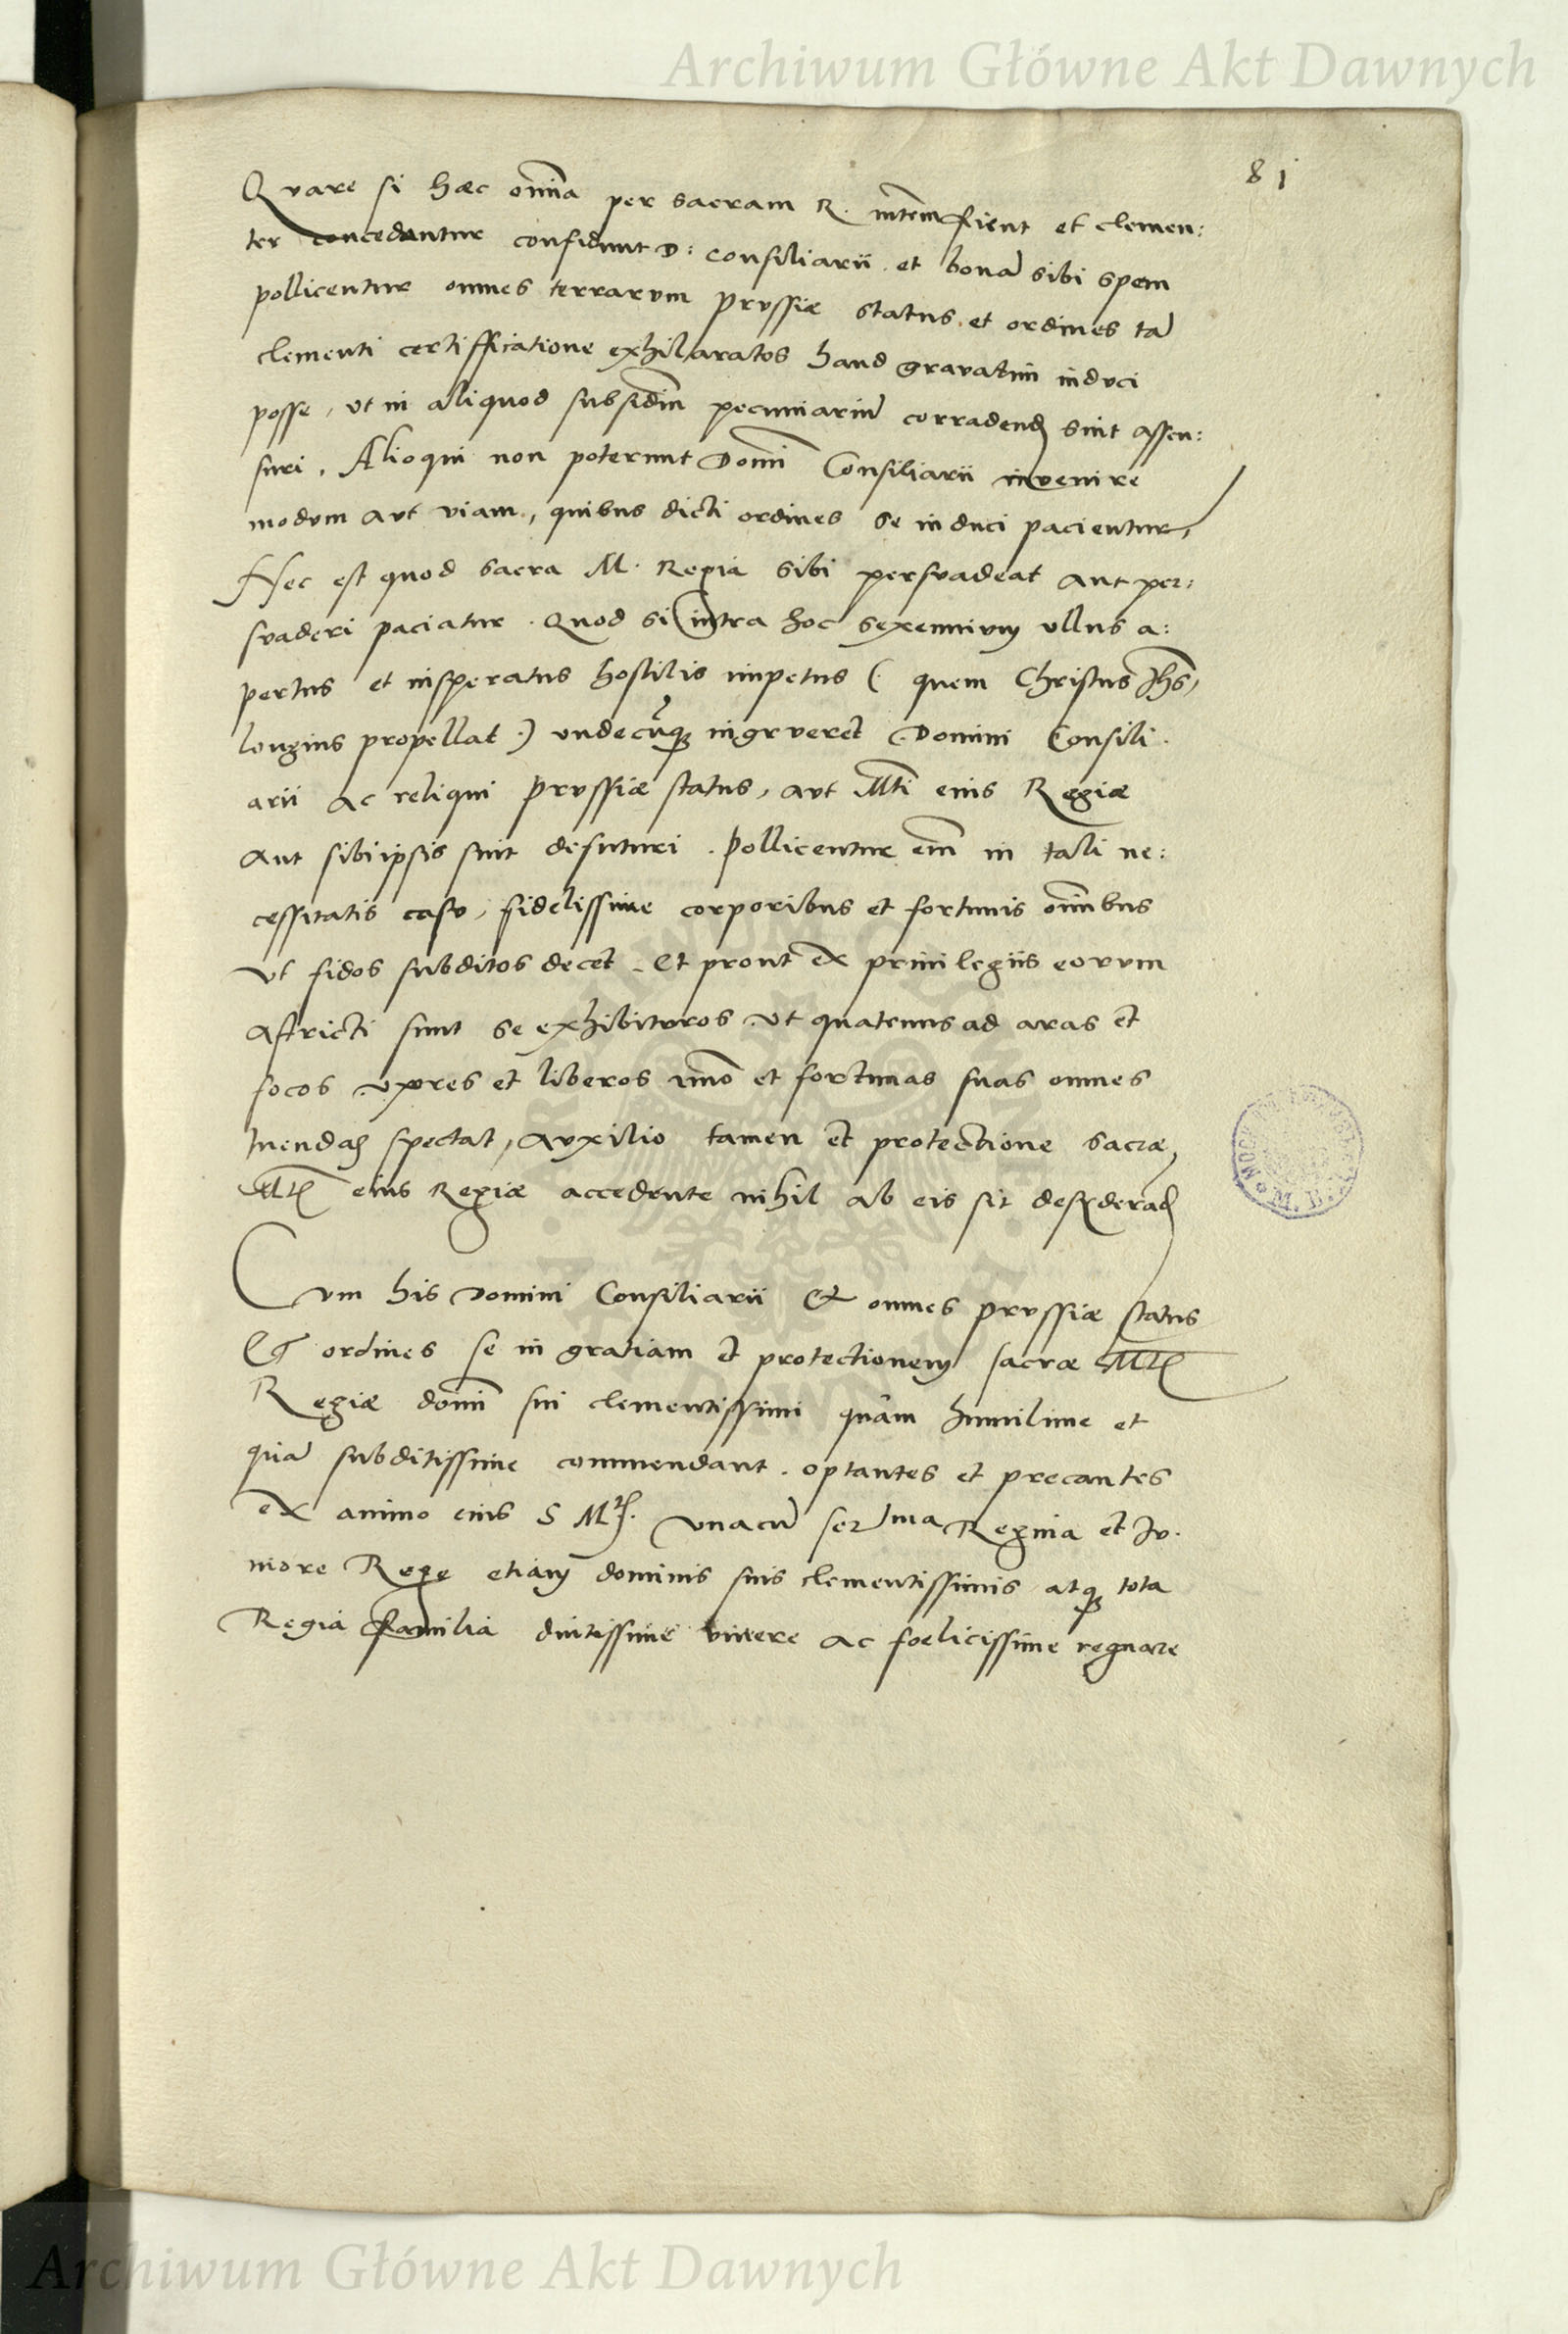 Archiwum Główne Akt Dawnych
81
Quare si hæc om̃ia per sacram R. mtem fient et clemen:
ter concedantur confidunt D: Consiliarii et bonā sibi spem
pollicentur omnes terrarvm Prvssiæ status et ordines tā
clementi certifficatione exhilaratos haud gravatim indvci
posse, vt in aliquod subsidiū pecuniariū corradend sint assen:
suri. Alioqui non poterunt Domī Consiliarii invenire
modvm avt viam, quibus dicti ordines se induci pacientur,
Nec est quod sacra M. Regia sibi persvadeat aut per:
svaderi paciatur. Quod si intra hoc sexennivm vllus a:
pertus et insperatus hostilis impetus (quem Christus Jhs,
longius propellat.) vndecūq; ingrveret Domini Consili.
arii ac reliqui Prvssiæ status, avt Mti eius Regiæ
aut sibiipsis sint defuturi. Pollicentur em̃ in tali ne:
cessitatis casv, fidelissime corporibus et fortunis om̃ibus
vt fidos subditos decet. Et prout ex privilegiis eorvm
astricti sunt se exhibitvros. Vt quatenus ad aras et
focos vxores et liberos im̃o et fortunas suas omnes
tuendas spectat, avxilio tamen et protectione sacræ
Mtis eius Regiæ accedente nihil ab eis sit desyderad
Cvm his Domini Consiliarii Et omnes prvssiæ status
Et ordines se in gratiam et protectionem sacræ Mtis
Regiæ domī sui clementissimi quàm humilime et
quā subditissime commendant. optantes et precantes
ex animo eius S Mtis. vnacū ser ma Regina et Iv.
niore Rege etiam dominis suis clementissimis atq; tota
Regia familia diutissime vivere ac foelicissime regnare
Archiwum Główne Akt Dawnych